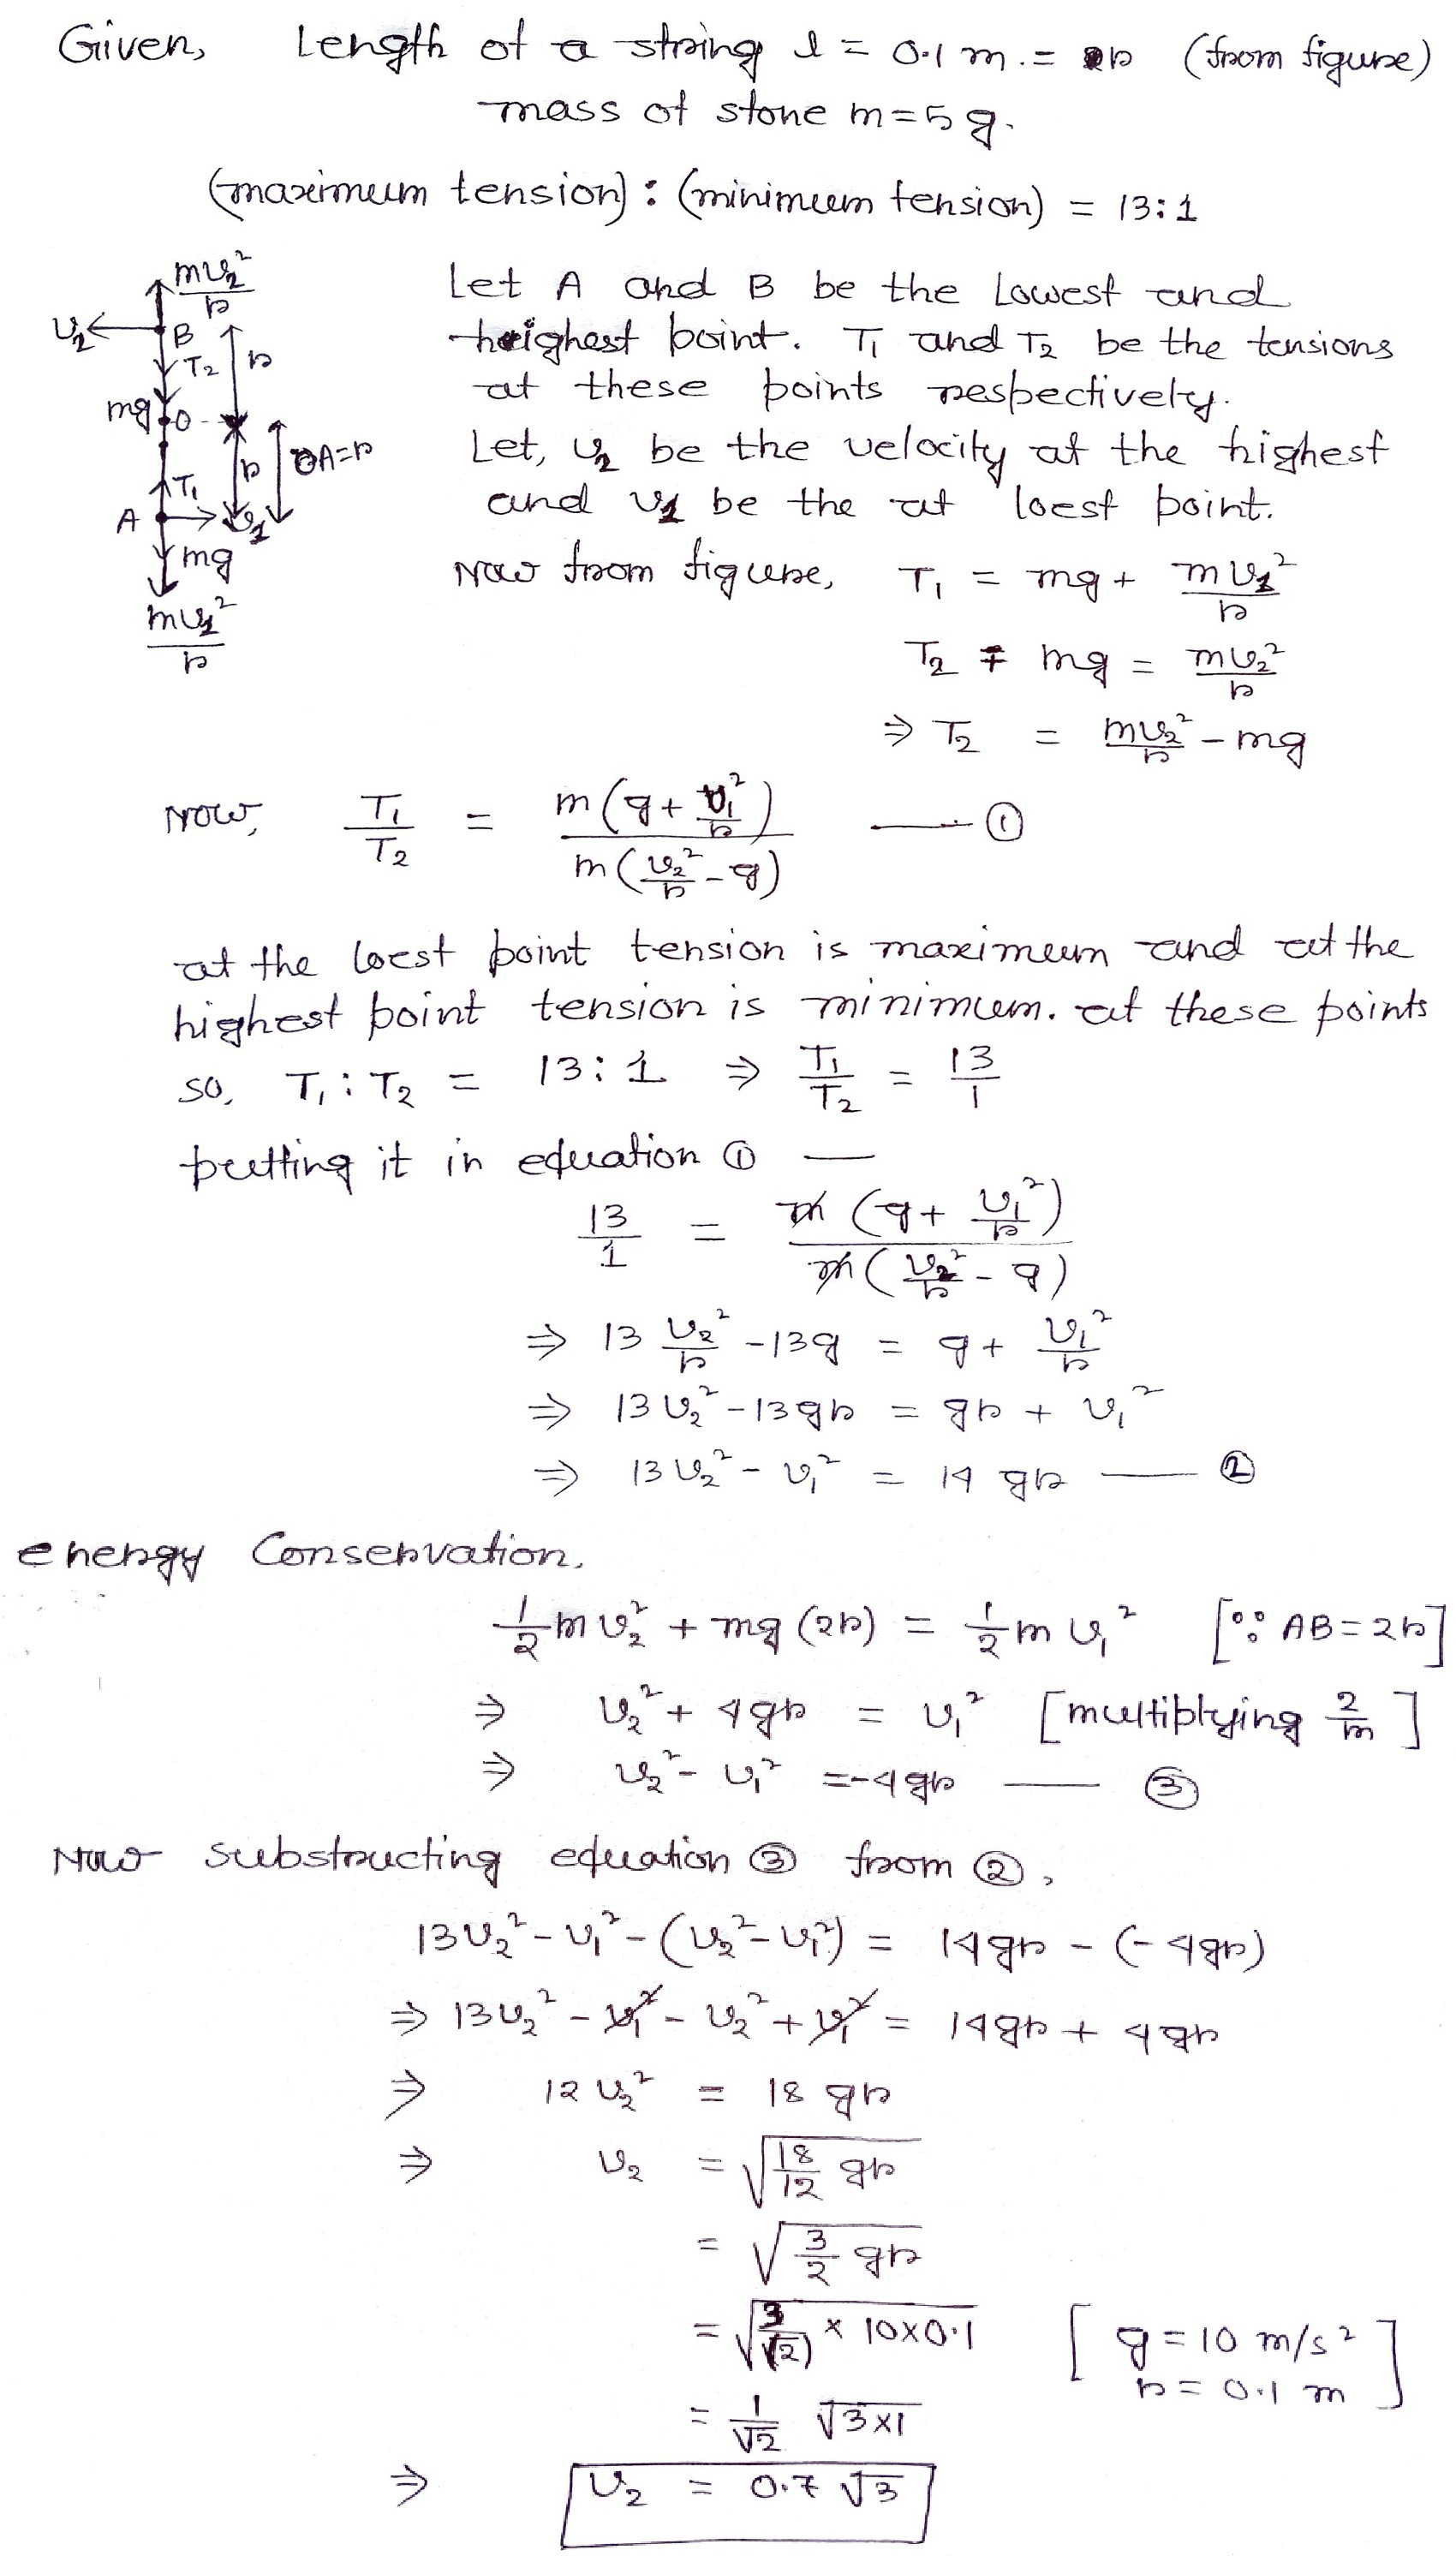 Given, Length of a string l = 0.1 m. = r (from figure)
mass of stone m = 5 g.
(maximum tension) : (minimum tension) = 13:1
mv₂²/r
v₂ B
T₂ r
mg O
r OA=r
T₁
A v₁
mg
mv₁²/r
Let A and B be the Lowest and
heighest point. T₁ and T₂ be the tensions
at these points respectively.
Let, v₂ be the velocity at the highest
and v₁ be the at loest point.
Now from figure, T₁ = mg + mv₁²/r
T₂ + mg = mv₂²/r
⇒ T₂ = mv₂²/r - mg
Now, T₁/T₂ = m(g + v₁²/r) / m(v₂²/r - g) — ①
at the loest point tension is maximum and at the
highest point tension is minimum. at these points
so, T₁ : T₂ = 13:1 ⇒ T₁/T₂ = 13/1
putting it in equation ① —
13/1 = m(g + v₁²/r) / m(v₂²/r - g)
⇒ 13 v₂²/r - 13g = g + v₁²/r
⇒ 13 v₂² - 13gr = gr + v₁²
⇒ 13 v₂² - v₁² = 14 gr — ②
energy Conservation.
1/2 m v₂² + mg(2r) = 1/2 m v₁² [∵ AB = 2r]
⇒ v₂² + 4gr = v₁² [multiplying 2/m]
⇒ v₂² - v₁² = -4gr — ③
Now substructing equation ③ from ②,
13v₂² - v₁² - (v₂² - v₁²) = 14gr - (-4gr)
⇒ 13v₂² - v₁² - v₂² + v₁² = 14gr + 4gr
⇒ 12 v₂² = 18 gr
⇒ v₂ = √(18/12 gr)
= √(3/2 gr)
= √(3/(2) × 10×0.1) [g = 10 m/s²
r = 0.1 m]
= 1/√2 √3×1
⇒ v₂ = 0.7 √3